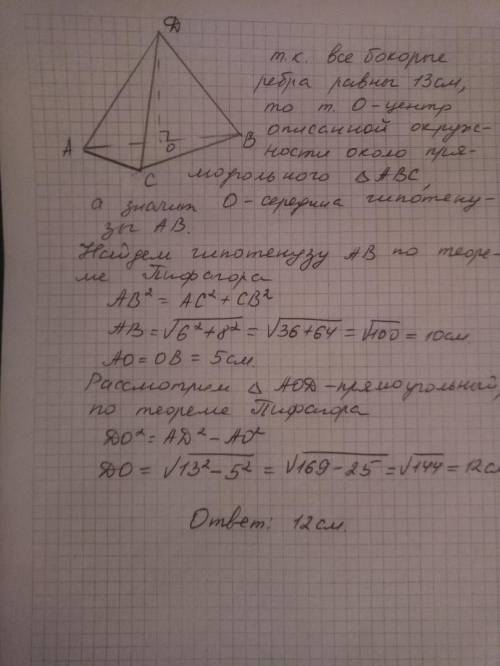 D
A
B
C
O
т.к. все боковые
ребра равны 13см,
то т. О-центр
описанной окруж-
ности около пря-
моугольного △ABC,
а значит О-середина гипотену-
зы AB.
Найдем гипотенузу AB по теоре-
ме Пифагора
AB² = AC² + CB²
AB = √6²+8² = √36+64 = √100 = 10см
AO = OB = 5см.
Рассмотрим △ AOD-прямоугольный,
по теореме Пифагора
DO² = AD² - AO²
DO = √13²-5² = √169-25 = √144 = 12см
Ответ: 12см.